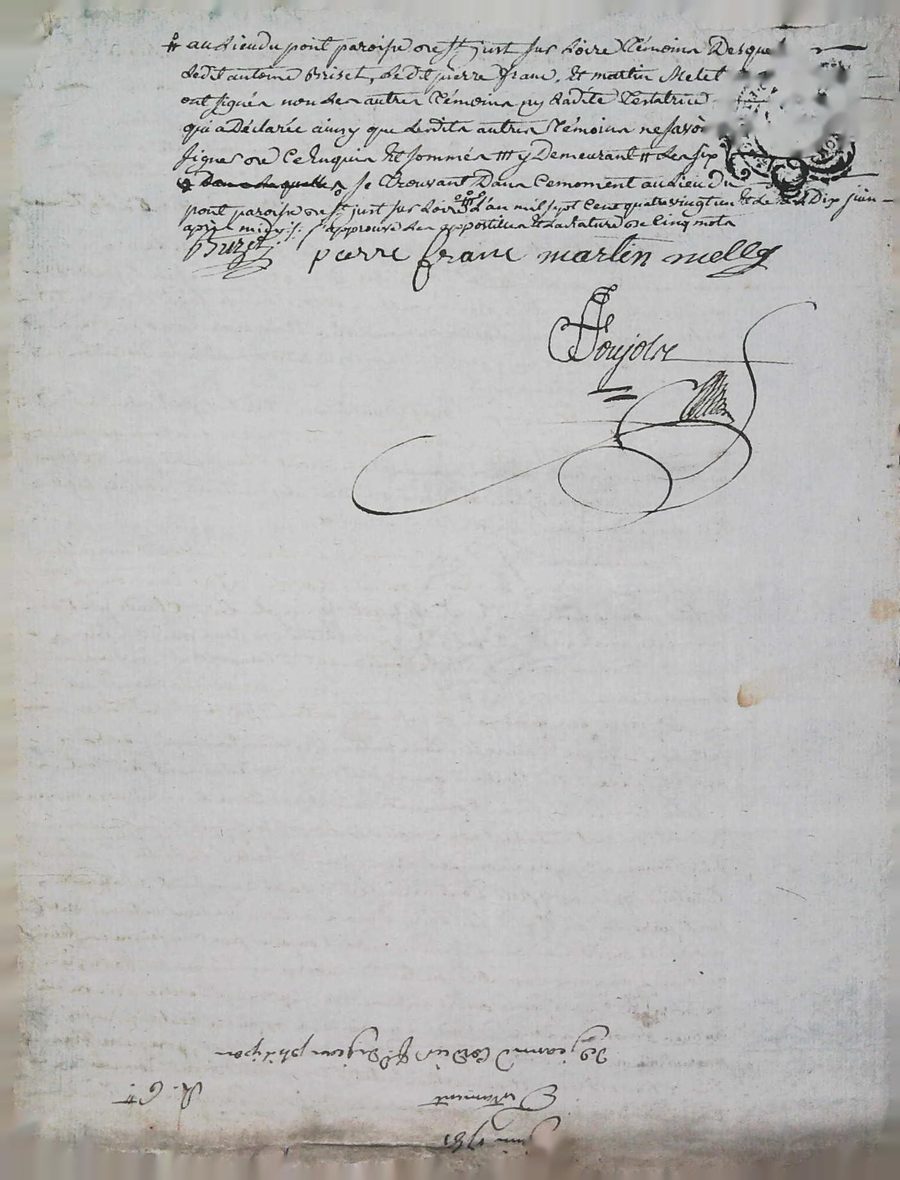 au Lieu du pont paroisse de st just sur Loire Témoins Desque
Ledit antoine Briset, Ledit pierre franc, et martin Melet
ont signés non Les autres Témoins ny Ladite Testatrice
qui a Déclarée ainsy que Lesdits autres Témoins ne savoi
signer de ce Enquis et sommés y Demeurant Les six
se trouvant Dans ce moment au Lieu du
pont paroisse de st just sur Loire L'an mil sept cent quatre vingt un et Le Dix juin
après midy j'approuve Les apostilles et La rature de cinq mots
pierre franc martin melley
Poujols
De jeanne philipon
Testament
juin 1781